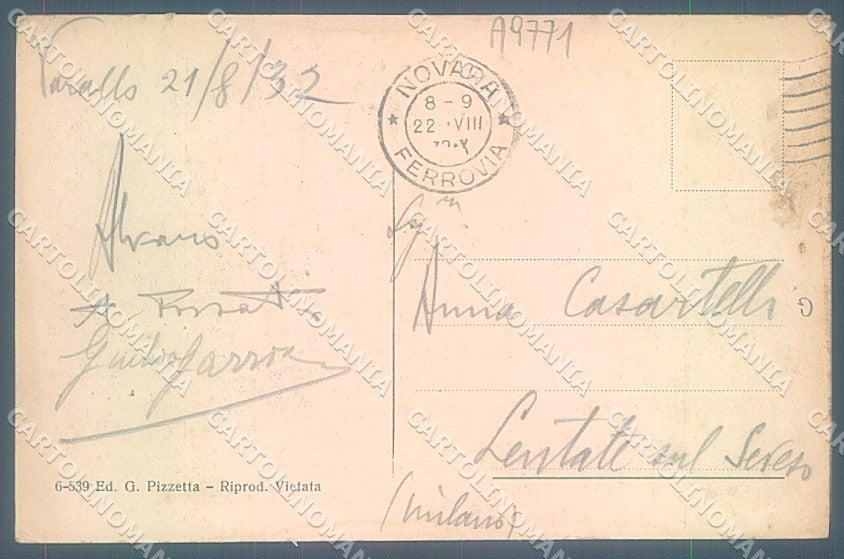 A9771
Varallo 21/8/32
NOVARA
8-9
22 · VIII
FERROVIA
Sgr.na
Anna Casartelli
G
Lentate sul Seveso
(Milano)
6-539 Ed. G. Pizzetta - Riprod. Vietata
CARTOLINOMANIA